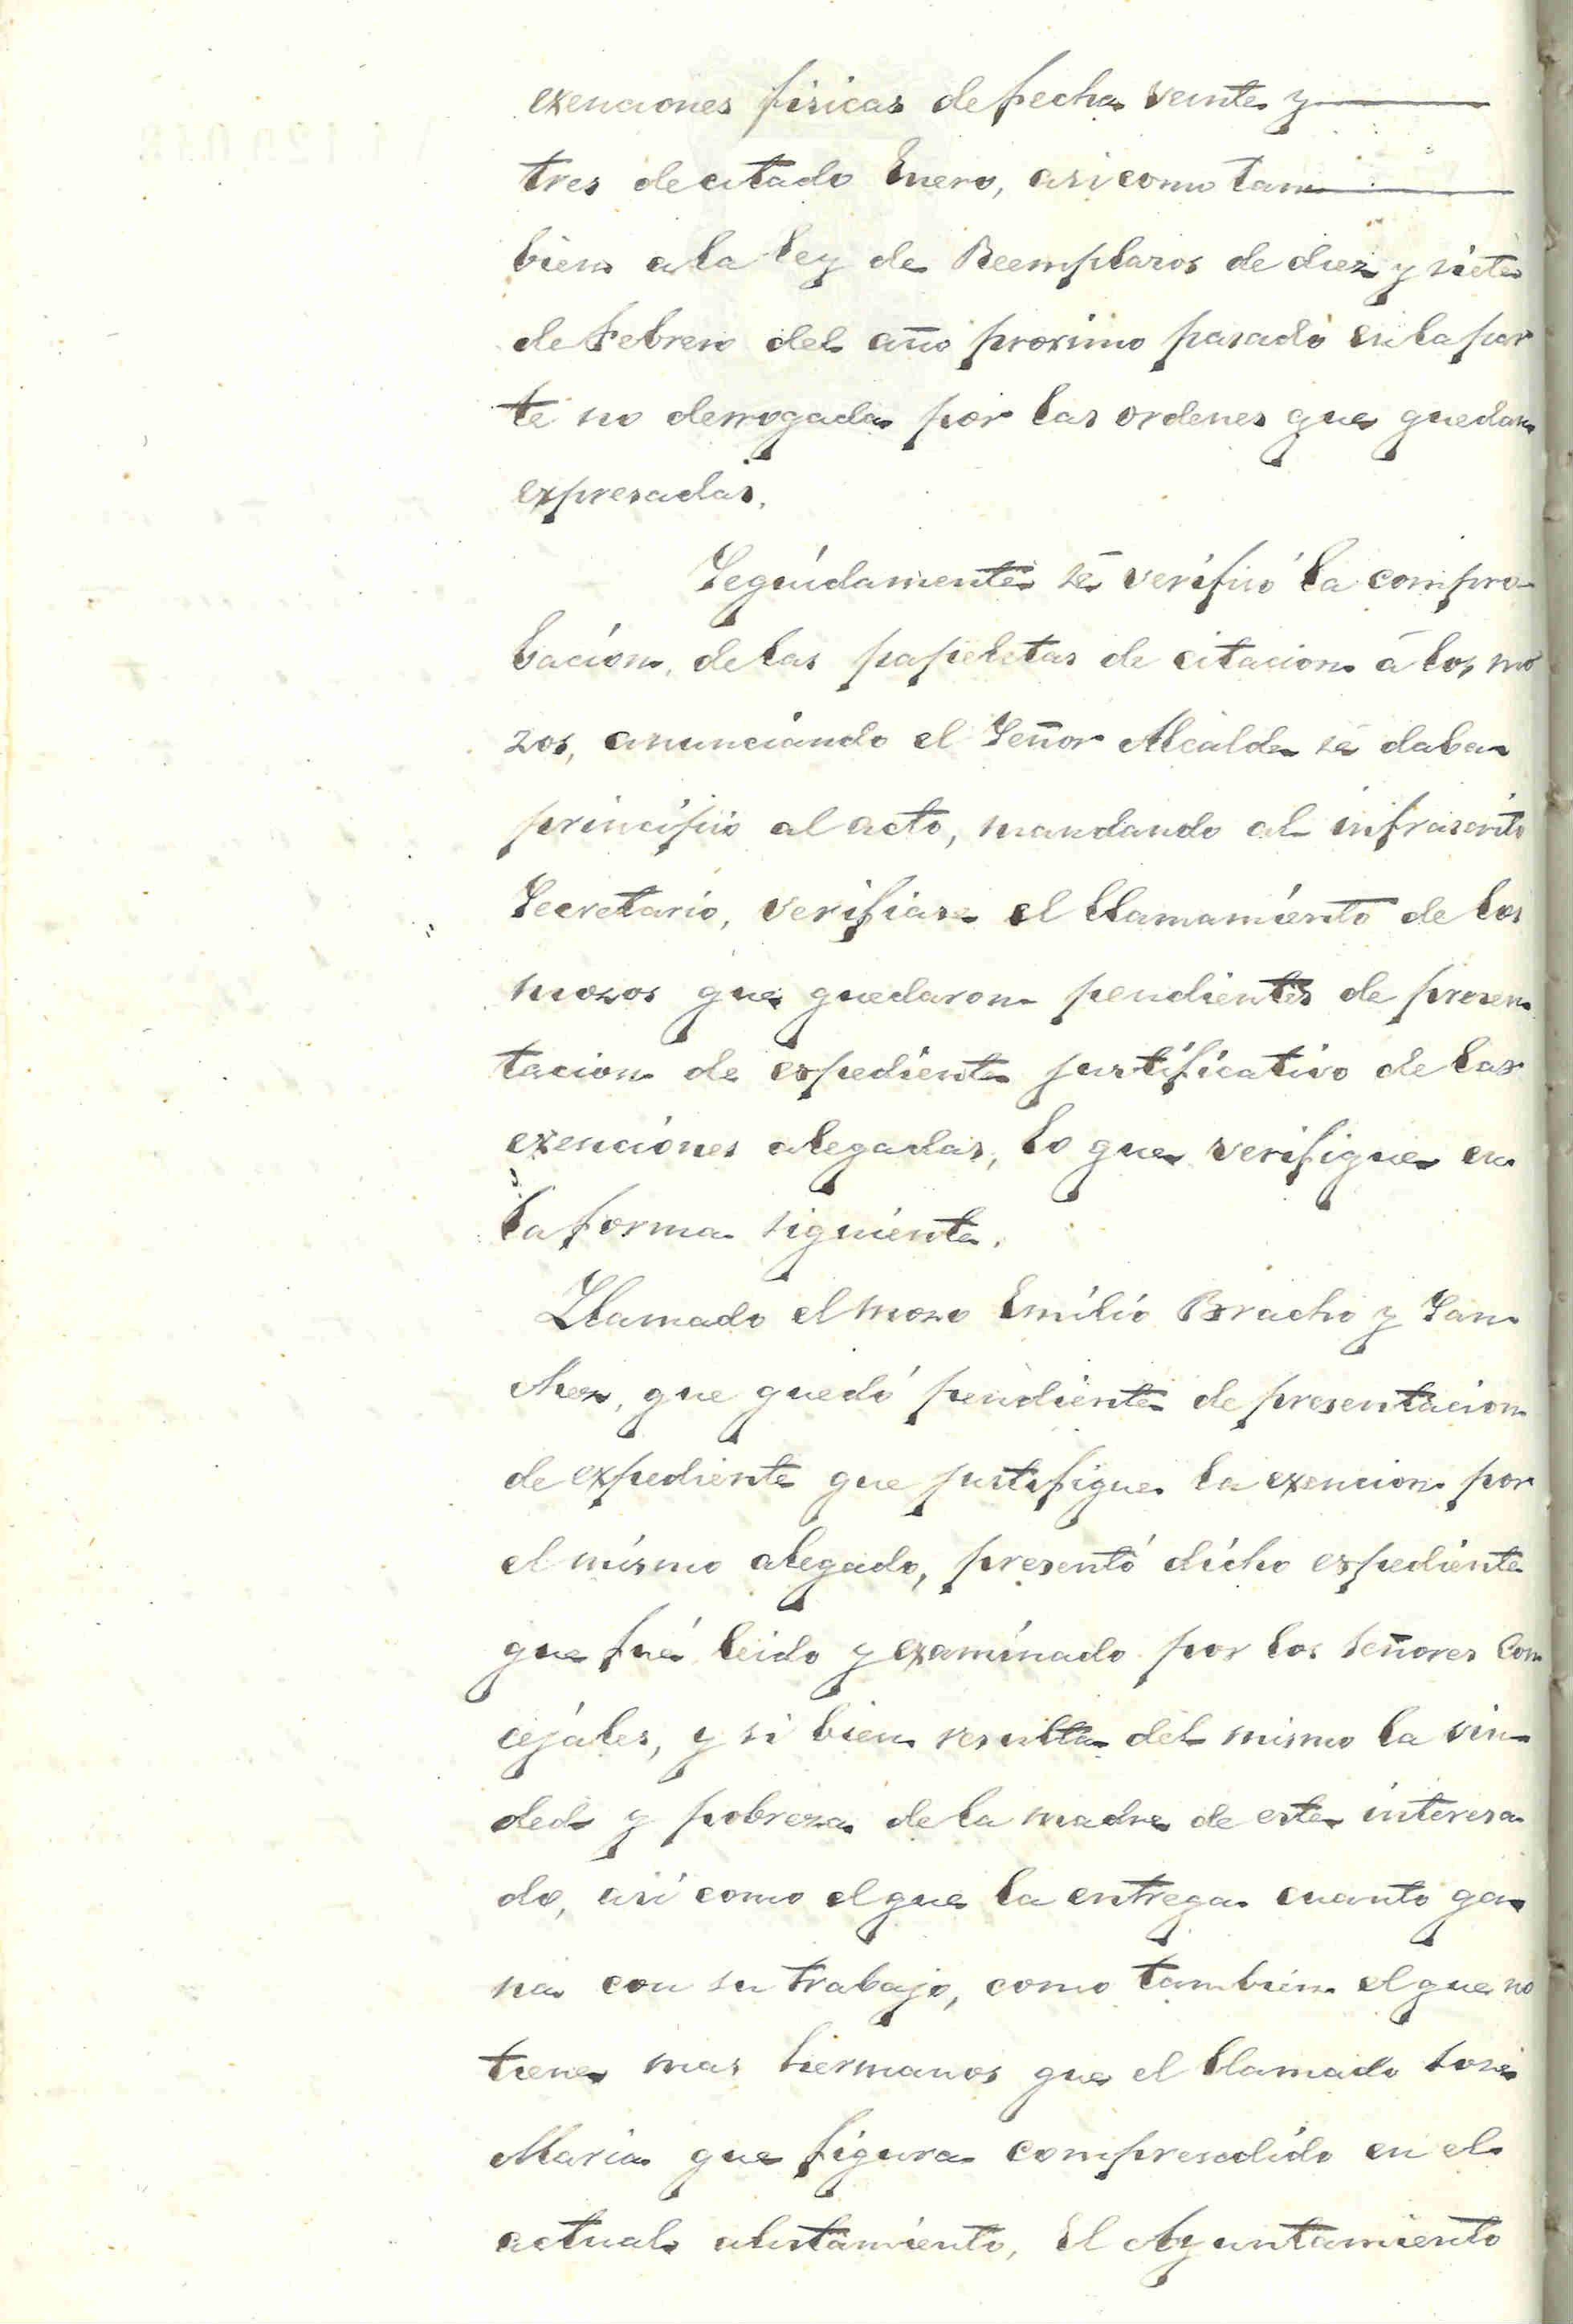 exenciones físicas de fecha veinte y
tres de citado Enero, asi como tam
bien a la ley de Reemplazos de diez y siete
de Febrero del año proximo pasado en la par
te no derrogada por las ordenes que quedan
expresadas.
Seguidamente se verificó la compro-
bación, de las papeletas de citacion á los mo
zos, anunciando el Señor Alcalde se daba
principio al acto, mandando al infrascrito
Secretario, verificase el llamamiento de los
mozos que quedaron pendientes de presen
tacion de espediente justificativo de las
exenciones alegadas, lo que verifique en
la forma siguiente.
Llamado el mozo Emilio Bracho y San
chez, que quedó pendiente de presentacion
de expediente que justifique la exencion por
el mismo alegado, presentó dicho espediente
que fué leido y examinado por los Señores Con
cejales, y si bien resulta del mismo la viu
dedz y pobreza de la madre de este interesa
do, así como el que la entrega cuanto ga
na con su trabajo, como tambien el que no
tiene mas hermanos que el llamado José
Maria que figura compresedido en el
actual alistamiento, El Ayuntamiento